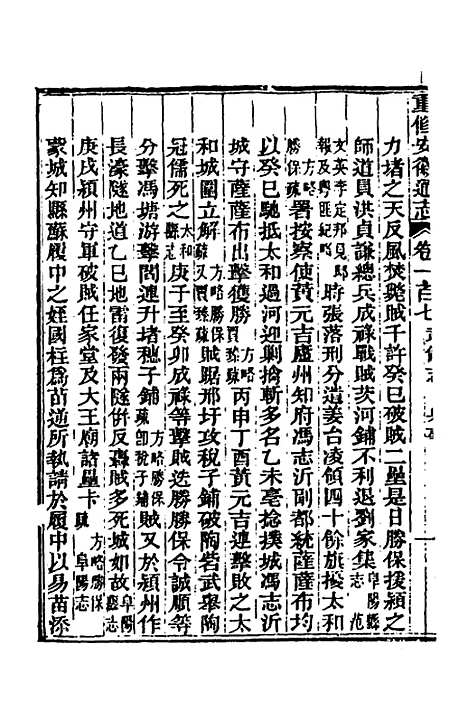 重修安徽通志 卷一百七 武備志
力堵之天反風焚斃賊千許癸巳破賊二壘是日勝保援潁之
師道員洪貞謙總兵成祿戰賊茨河鋪不利退劉家集阜陽縣志 范
文英李定邦見邸報及粵匪紀略時張落刑分道姜台凌領四十餘旗擾太和
方略勝保疏署按察使黃元吉廬州知府馮志沂副都統薩薩布均
以癸巳馳抵太和過河迎剿擒斬多名乙未亳捻撲城馮志沂
城守薩薩布出擊獲勝方略賈臻疏丙申丁酉黃元吉連擊敗之太
和城圍立解方略勝保疏又賈臻疏賊踞邢圩攻稅子鋪破陶砦武舉陶
冠儒死之太和縣志庚子至癸卯成祿等擊賊迭勝勝保令誠順等
分擊馮塘游擊閻連升堵穗子鋪方略勝保疏即稅子鋪賊又於潁州作
長濠隧地道乙巳地雷復發兩隧併反轟賊多死城如故阜陽縣志
庚戌潁州守軍破賊任家堂及大王廟諸壘卡方略勝保疏 阜陽縣志
蒙城知縣蘇履中之姪國柱為苗逋所執請於履中以易苗添